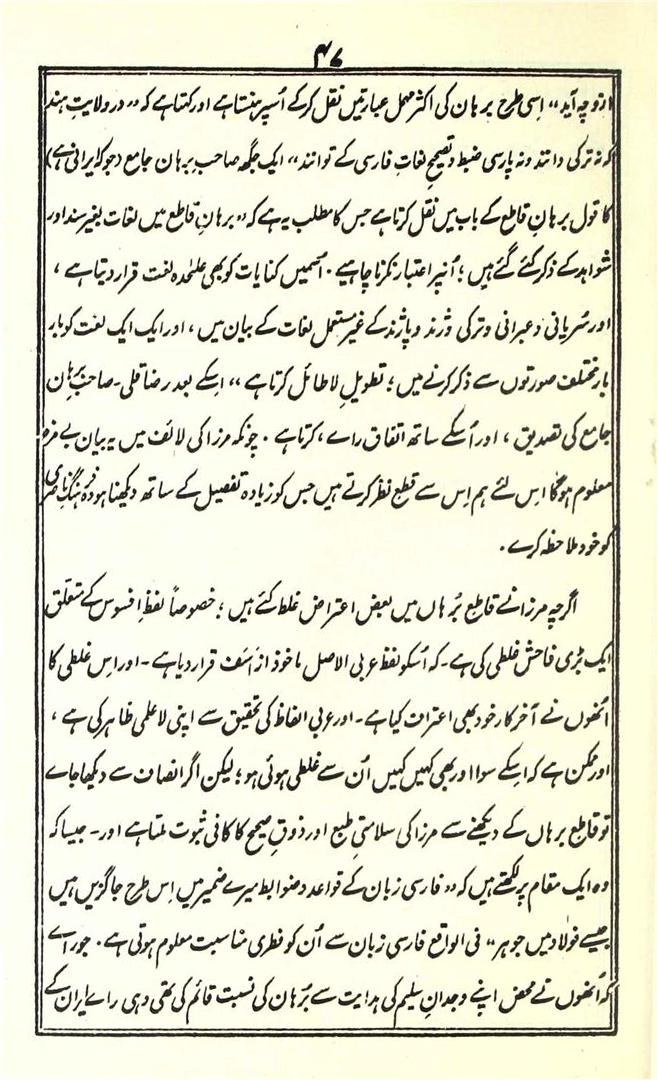 ۴۷
ازو چہ آید“ اِسی طرح برہان کی اکثر مہمل عبارتیں نقل کرکے اُسپر ہنستا ہے اور کہتا ہے کہ ”در ولایتِ ہند
کہ نہ ترکی دانند و نہ پارسی ضبط و تصحیحِ لغاتِ فارسی کے توانند“ ایک جگہ صاحبِ برہانِ جامع (جو کہ ایرانی ہے)
کا قول برہانِ قاطع کے باب میں نقل کرتا ہے جس کا مطلب یہ ہے کہ ”برہانِ قاطع میں لغات بغیر سند اور
شواہد کے ذکر کئے گئے ہیں؛ اُنپر اعتبار نکرنا چاہیے۔ اُسمیں کنایات کو بھی علٰحدہ لغت قرار دیتا ہے،
اور سُریانی و عبرانی و ترکی و ژند و پاژند کے غیر مستعمل لغات کے بیان میں، اور ایک ایک لغت کو بار
بار مختلف صورتوں سے ذکر کرنے میں؛ تطویلِ لاطائل کرتا ہے“ اِسکے بعد رضا قلی۔ صاحبِ برہانِ
جامع کی تصدیق، اور اُسکے ساتھ اتفاق راے، کرتا ہے۔ چونکہ مرزا کی لائف میں یہ بیان بے مزہ
معلوم ہوگا اس لئے ہم اِس سے قطع نظر کرتے ہیں جس کو زیادہ تفصیل کے ساتھ دیکھنا ہو وہ فرہنگِ ناصری
کو خود ملاحظہ کرے۔
اگرچہ مرزا نے قاطعِ بُرہاں میں بعض اعتراض غلط کئے ہیں؛ خصوصاً لفظِ افسوس کے متعلق
ایک بڑی فاحش غلطی کی ہے۔ کہ اُسکو لفظ عربی الاصل ماخوذ از اَسَف قرار دیا ہے۔ اور اس غلطی کا
اُنھوں نے آخرکار خود بھی اعتراف کیا ہے۔ اور عربی الفاظ کی تحقیق سے اپنی لاعلمی ظاہر کی ہے،
اور ممکن ہے کہ اِسکے سوا اور بھی کہیں کہیں اُن سے غلطی ہوئی ہو؛ لیکن اگر انصاف سے دیکھا جاے
تو قاطع برہاں کے دیکھنے سے مرزا کی سلامتیِ طبع اور ذوقِ صحیح کا کافی ثبوت ملتا ہے اور۔ جیسا کہ
وہ ایک مقام پر لکھتے ہیں کہ ”فارسی زبان کے قواعد و ضوابط میرے ضمیر میں اِس طرح جاگزیں ہیں
جیسے فولاد میں جوہر“ فی الواقع فارسی زبان سے اُن کو فطری مناسبت معلوم ہوتی ہے۔ جو راے
کہ اُنھوں نے محض اپنے وجدانِ سلیم کی ہدایت سے بُرہان کی نسبت قائم کی تھی وہی راے ایران کے